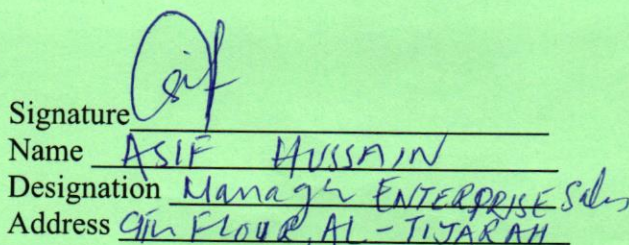 Signature Asif
Name ASIF HUSSAIN
Designation Manager ENTERPRISE Sales
Address 9th FLOUR, AL-TIJARAH